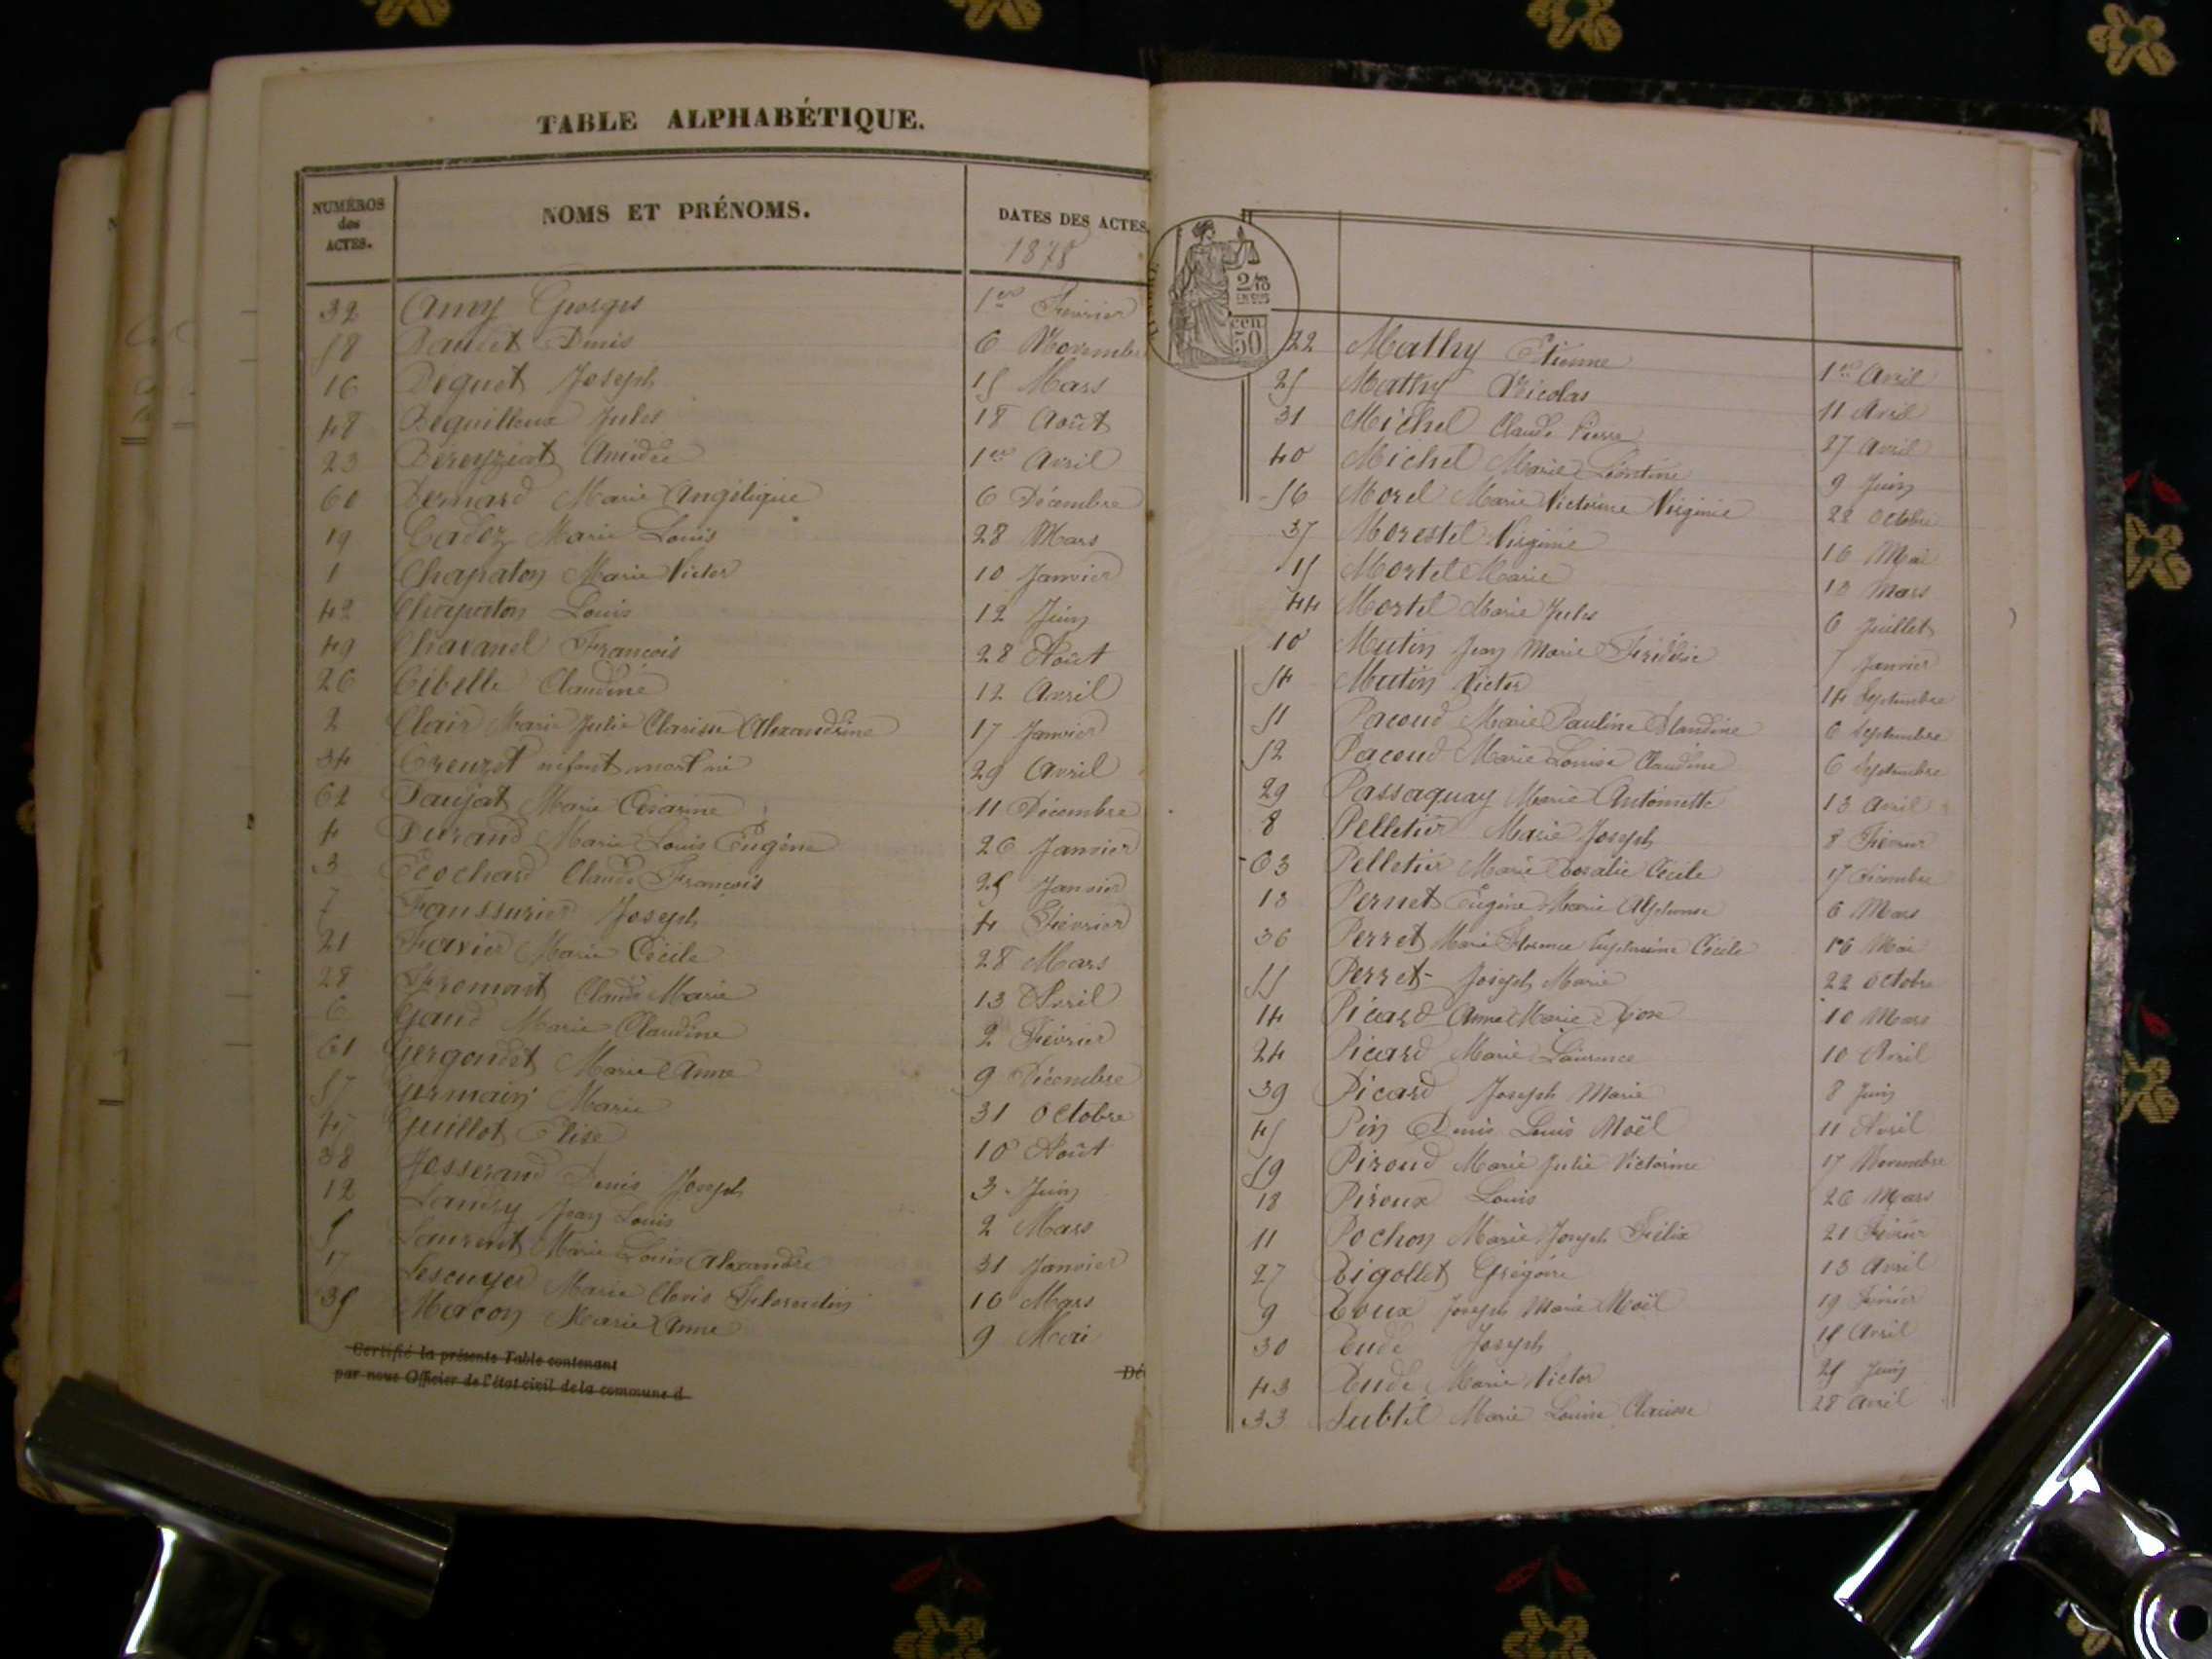 TABLE ALPHABÉTIQUE.
NUMÉROS des ACTES. NOMS ET PRÉNOMS. DATES DES ACTES
1878
32 Amy Georges 1er Février
58 Denis 6 Novembre
16 Beguet Joseph 15 Mars
48 Beguilleux Jules 18 Août
23 Bereyziat Amédée 1er Avril
60 Bernard Marie Angélique 6 Décembre
19 Cadoz Marie Louis 28 Mars
1 Chapaton Marie Victor 10 Janvier
42 Chapaton Louis 12 Juin
49 Chavanel François 28 Août
26 Cibelle Claudine 12 Avril
2 Clair Marie Julie Clarisse Alexandrine 17 Janvier
34 Creuzet enfant mort né 29 Avril
62 Daujat Marie Césarine 11 Décembre
4 Durand Marie Louis Eugène 26 Janvier
3 Ecochard Claude François 25 Janvier
7 Faussurier Joseph 4 Février
21 Favier Marie Cécile 28 Mars
28 Fromont Claude Marie 13 Avril
6 Gaud Marie Claudine 2 Février
61 Gergondet Marie Anne 9 Décembre
57 Germain Marie 31 Octobre
47 Guillot Elise 10 Août
38 Josserand Denis Joseph 3 Juin
12 Landry Jean Louis 2 Mars
5 Laurent Marie Louis Alexandre 31 Janvier
17 Lescuyer Marie Clovis Florentin 16 Mars
35 Macon Marie Anne 9 Mai
Certifié la présente Table contenant
par nous Officier de l'état civil de la commune d
Dé
2/10 EN SUS
50 cen
22 Mathy Etienne 1er Avril
25 Mathy Nicolas 11 Avril
31 Michel Claude Pierre 27 Avril
40 Michel Marie Léontine 9 Juin
56 Morel Marie Victorine Virginie 22 Octobre
37 Morestel Virginie 16 Mai
15 Mortel Marie 10 Mars
44 Mortel Marie Jules 6 Juillet
10 Mutin Jean Marie Frédéric Janvier
54 Mutin Victor 14 Septembre
51 Pacoud Marie Pauline Blandine 6 Septembre
52 Pacoud Marie Louise Claudine 6 Septembre
29 Passaquay Marie Antoinette 13 Avril
8 Pelletier Marie Joseph 8 Février
63 Pelletier Marie Rosalie Cécile 17 Décembre
13 Pernet Eugène Marie Alphonse 6 Mars
36 Perret Marie Florence Cécile 16 Mai
55 Perret Joseph Marie 22 Octobre
14 Picard Anne Marie 10 Mars
24 Picard Marie Laurence 10 Avril
39 Picard Joseph Marie 8 Juin
45 Pin Denis Louis Noël 11 Avril
59 Piroud Marie Julie Victorine 17 Novembre
18 Piroux Louis 26 Mars
11 Pochon Marie Joseph Félix 21 Février
27 Rigollet Grégoire 13 Avril
9 Roux Joseph Marie Noël 19 Février
30 Rude Joseph 18 Avril
43 Rude Marie Victor 25 Juin
33 Subtil Marie Louise Clarisse 28 Avril